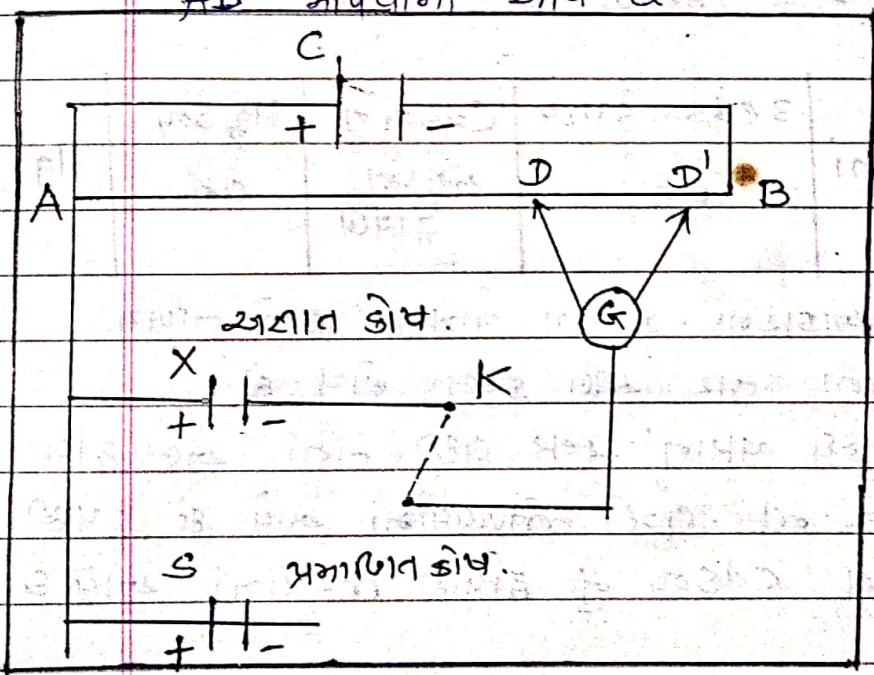 C
+ -
D D'
A B
G
અજ્ઞાત કોષ.
X K
+ -
S પ્રમાણિત કોષ.
+ -